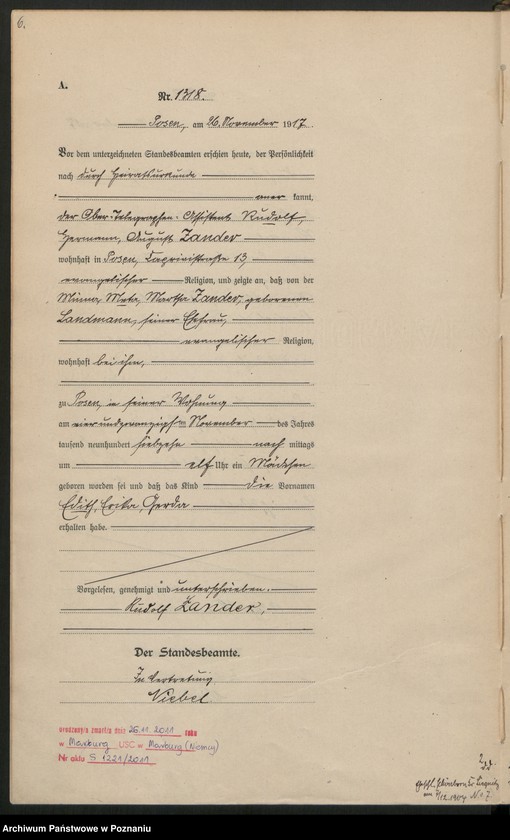 6.
A.
Nr. 1318.
Posen, am 26. November 1917.
Vor dem unterzeichneten Standesbeamten erschien heute, der Persönlichkeit
nach durch Heiratsurkunde
aner kannt,
der Ober-Telegraphen-Assistent Rudolf,
Hermann, August Zander
wohnhaft in Posen, Caprivistraße 13,
evangelischer Religion, und zeigte an, daß von der
Minna, Meta, Martha Zander, geborenen
Landmann, seiner Ehefrau,
evangelischer Religion,
wohnhaft bei ihm,
zu Posen, in seiner Wohnung
am vierundzwanzigsten November des Jahres
tausend neunhundert siebzehn nach mittags
um elf Uhr ein Mädchen
geboren worden sei und daß das Kind die Vornamen
Edith, Erika, Gerda
erhalten habe.
Vorgelesen, genehmigt und unterschrieben.
Rudolf Zander,
Der Standesbeamte.
In Vertretung
Niebel
urodzony/a zmarł/a dnia 26.11.2011 roku
w Marburg USC w Marburg (Niemcy)
Nr aktu S 1221/2011
Nr 7
Archiwum Państwowe w Poznaniu